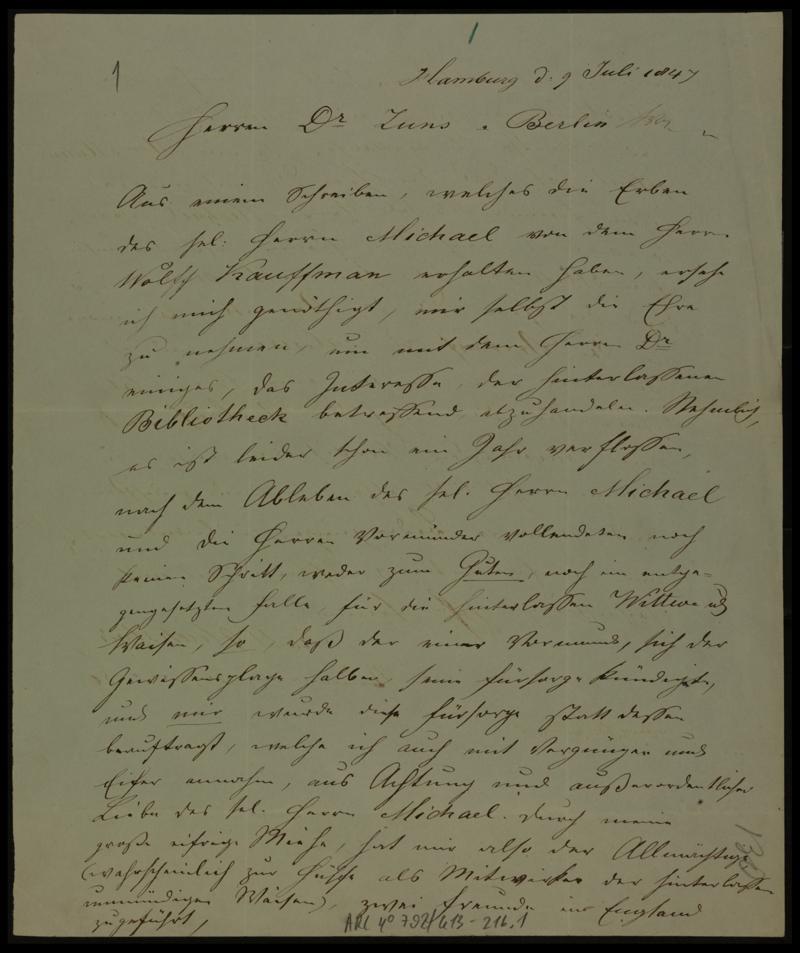 1
Hamburg d. 9 Juli 1847
Herrn Dr Zuns. Berlin
Aus einem Schreiben, welches die Erben
des sel. Herrn Michael von dem Herrn
Wolff Kauffman erhalten haben, ersehe
ich mich genöthigt, mir selbst die Ehre
zu nehmen, um mit dem Herrn Dr
einiges, das Interesse der hinterlassenen
Bibliotheck betreffend abzuhandeln. Nehmlich,
es ist leider schon ein Jahr verflossen,
nach dem Ableben des sel. Herrn Michael
und die Herren Vormünder vollendeten noch
keinen Schritt, weder zum Guten, noch im entge-
gengesetzten Falle, für die hinterlassen Wittwe und
Waisen, so, daß der einer Vormund, sich der
Gewissensplage halben, seine Fürsorge kündigte,
und mir wurde diese Fürsorge statt dessen
beauftragt, welche ich auch mit Vergnügen und
Eifer annahm, aus Achtung und außerordentlicher
Liebe des sel. Herrn Michael. Durch meine
große eifrige Mühe, hat mir also der Allmächtige
(wahrscheinlich zur Hülfe als Mitwirker der hinterlassen
unmündigen Waisen), zwei Freunde in England
zugeführt,
ARC 4º 792/G13-216.1